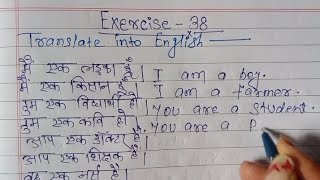 Exercise - 38
Translate into English
मैं एक लड़का हूँ। I am a boy.
मैं एक किसान हूँ। I am a farmer.
तुम एक विद्यार्थी हो। You are a student.
तुम एक कवि हो। You are a P
आप एक डॉक्टर हैं।
आप एक शिक्षक हैं।
वह एक नर्स है।